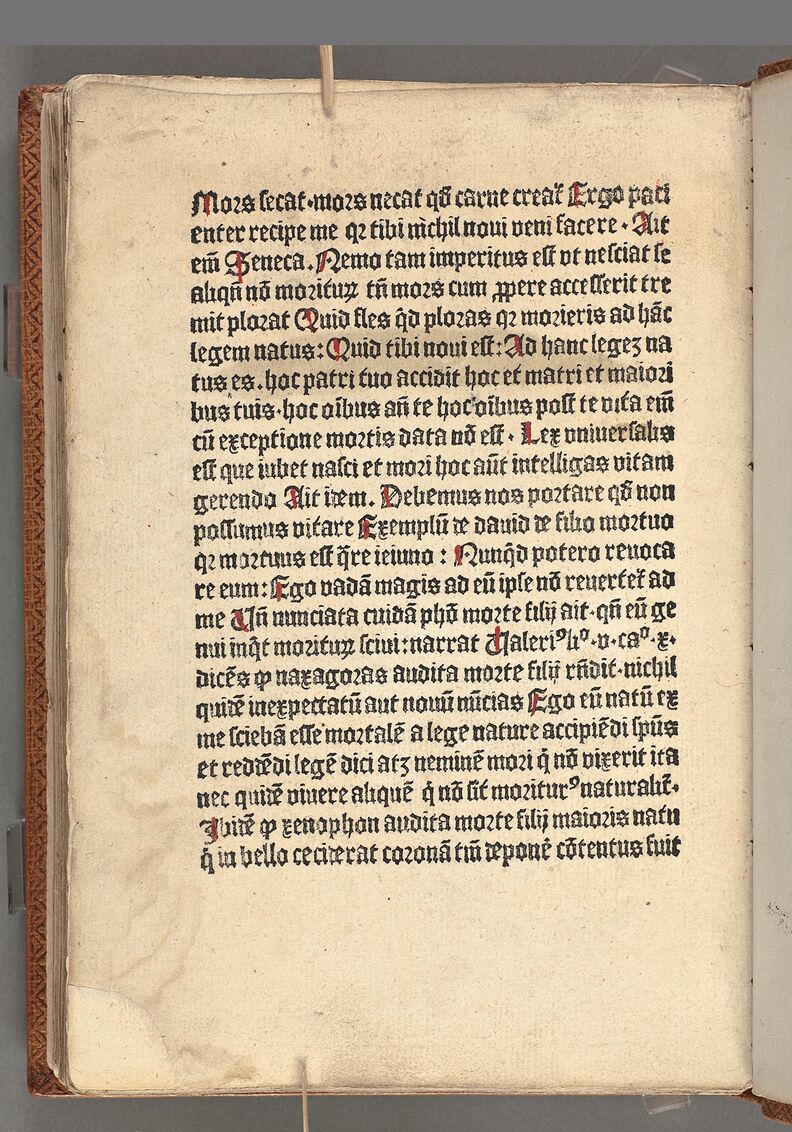 Mors secat·mors necat qđ carne creat᷑ Ergo paci
enter recipe me qꝛ tibi nichil noui veni facere · Ait
em̄ Seneca. Nemo tam imperitus est vt nesciat se
aliqn̄ nō moriturꝫ tn̄ mors cum ꝓpere accesserit tre
mit plorat Quid fles qͥd ploras qꝛ morieris ad hāc
legem natus: Quid tibi noui est: Ad hanc legeꝫ na
tus es. hoc patri tuo accidit hoc et matri et maiori
bus tuis· hoc oībus an̄ te hoc oībus post te vita em̄
cū exceptione mortis data nō est · Lex vniuersalis
est que iubet nasci et mori hoc aūt intelligas vitam
gerendo Ait item. Debemus nos portare qđ non
possumus vitare Exemplū de dauid de filio mortuo
qꝛ mortuus est q̄re ieiuno : Nunqͥd potero reuoca
re eum: Ego vadā magis ad eū ipse nō reuertet᷑ ad
me Vn̄ nunciata cuidā phō morte filij ait· qn̄ eū ge
nui inqͥt moriturꝫ sciui: narrat Valeriꝰ liº·v·caº·x·
dicēs ꝙ naxagoras audita morte filij rn̄dit·nichil
quidē inexpectatū aut nouū nūcias Ego eū natū ex
me sciebā esse mortalē a lege nature accipiēdi spūs
et reddēdi legē dici atꝫ neminē mori qͥ nō vixerit ita
nec quidē viuere aliquē qͥ nō sit moriturꝰ naturalit᷑·
Ibidē ꝙ xenophon audita morte filij maioris natu
qͥ in bello ceciderat coronā tm̄ deponē cōtentus fuit